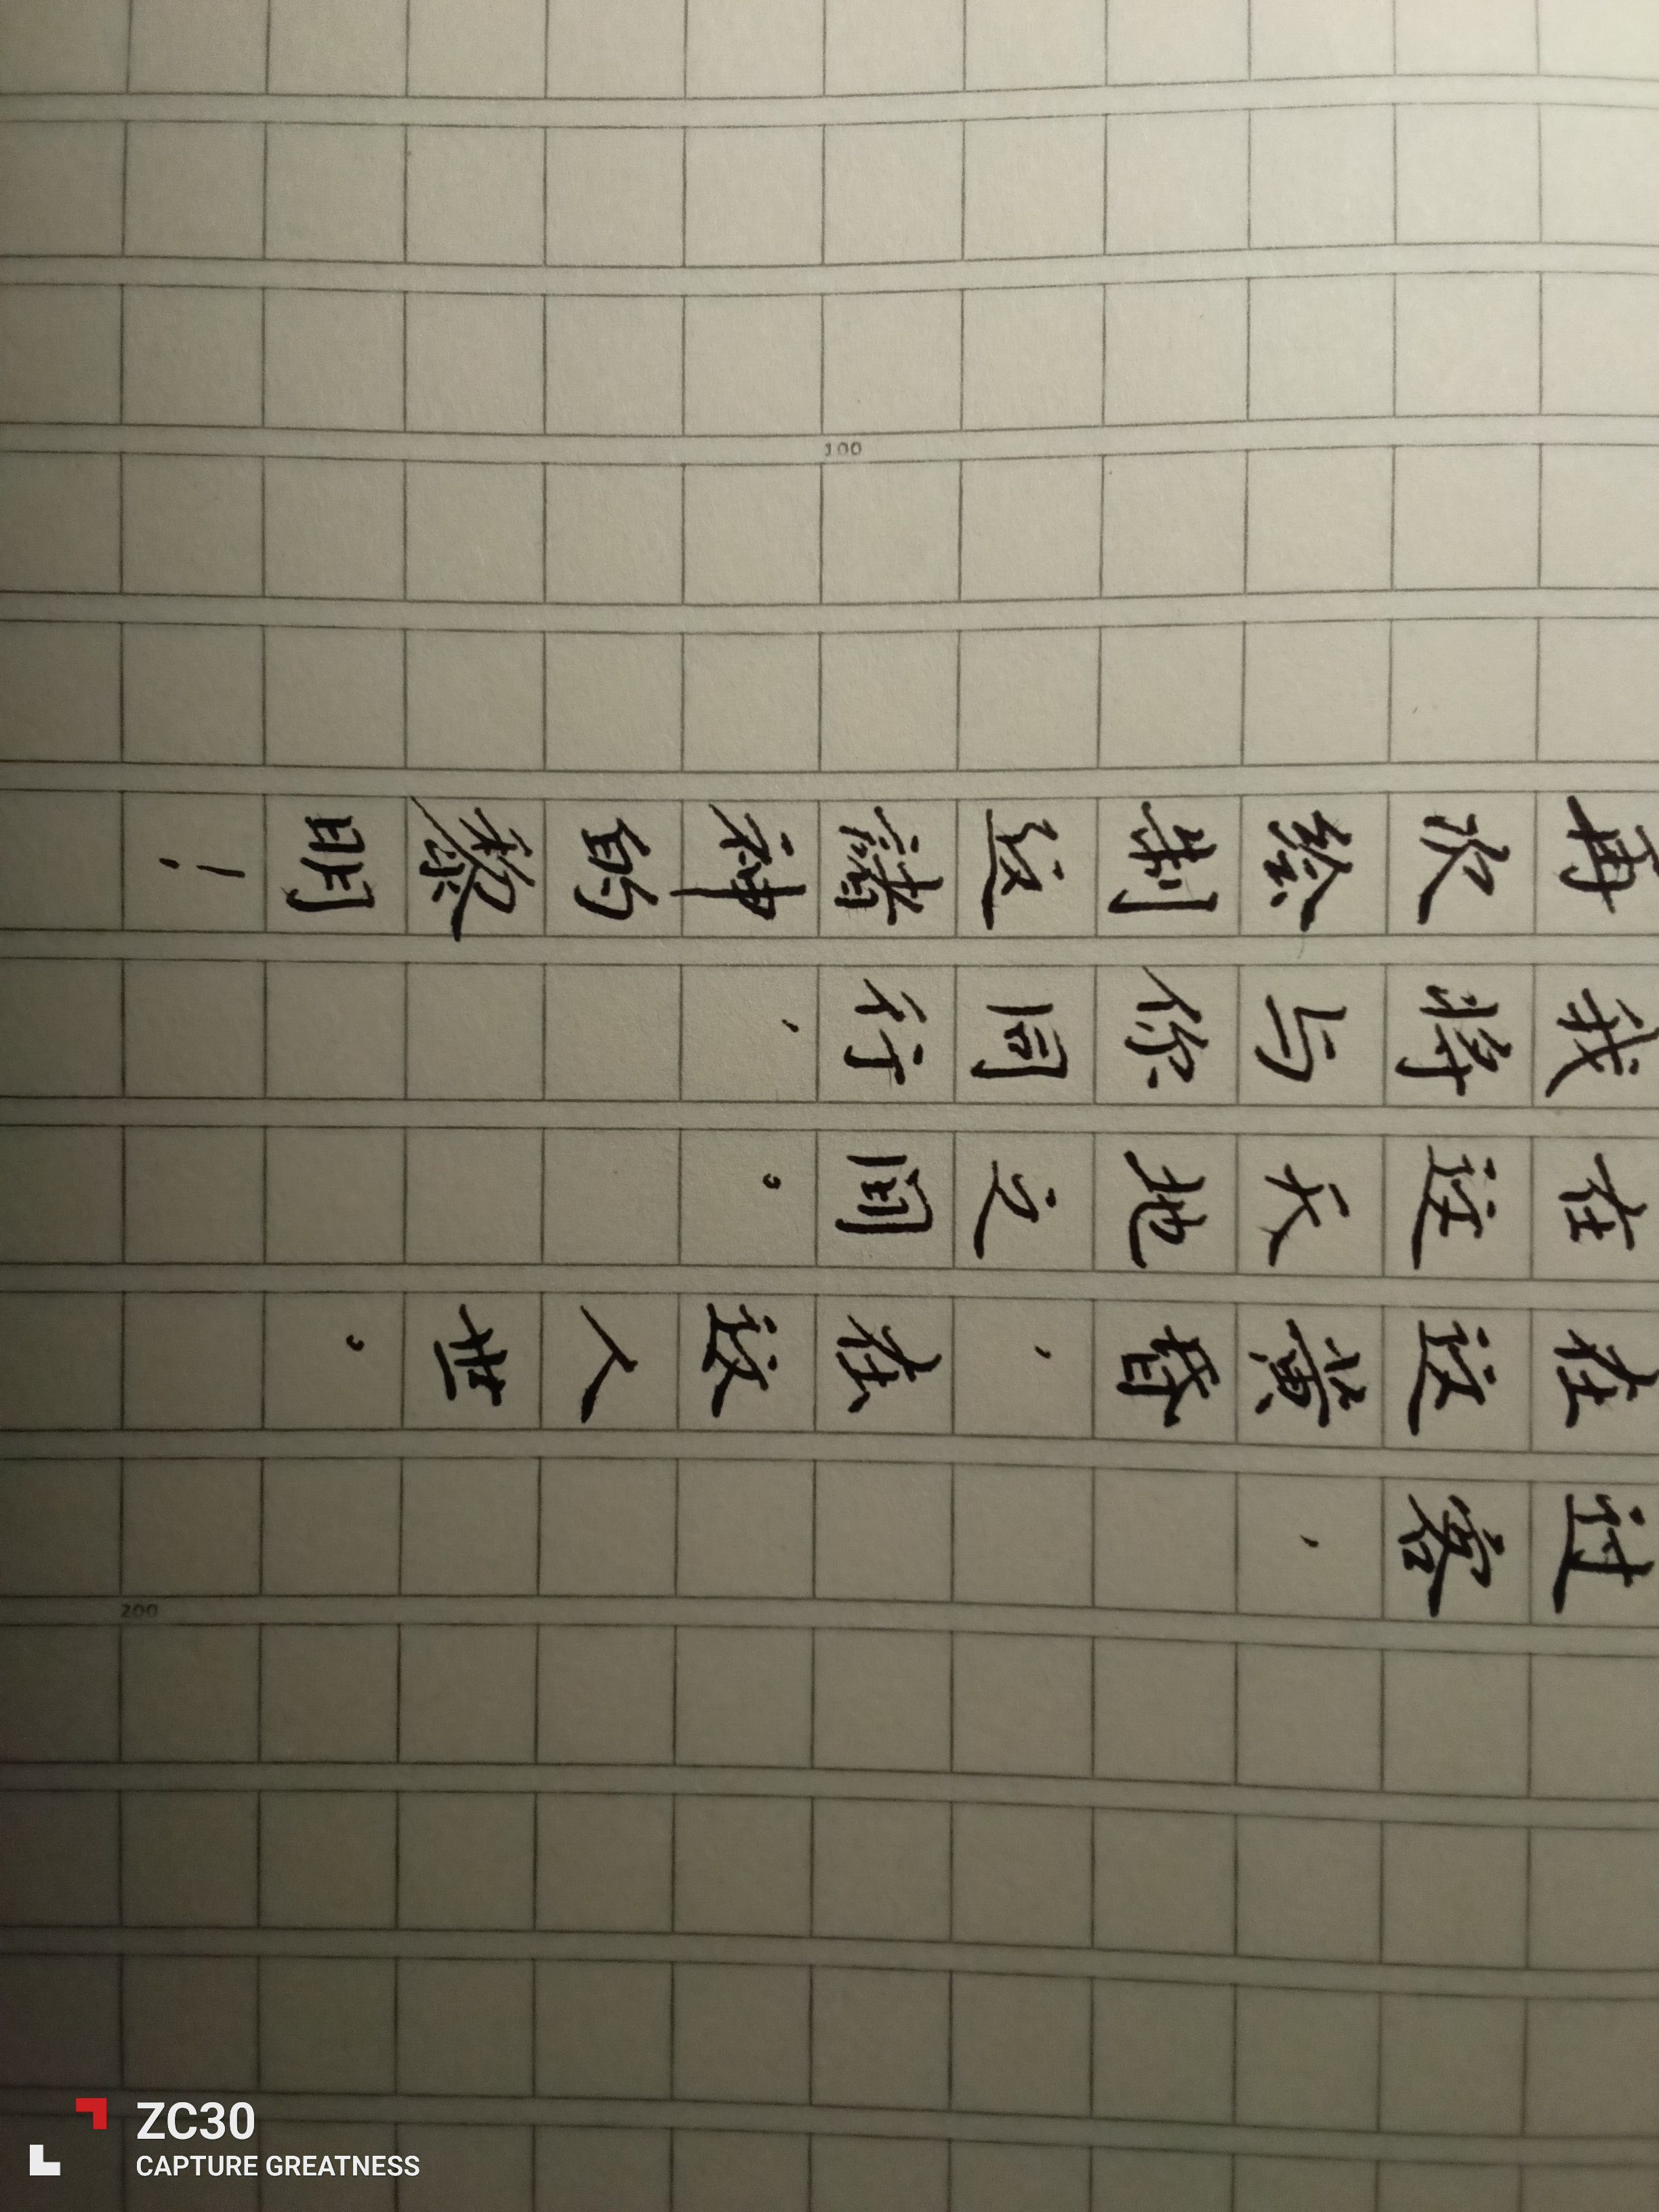 过客，
在这黄昏，在这人世。
在这天地之间。
我将与你同行，
再次绘制这诸神的黎明！
100
200
ZC30
CAPTURE GREATNESS